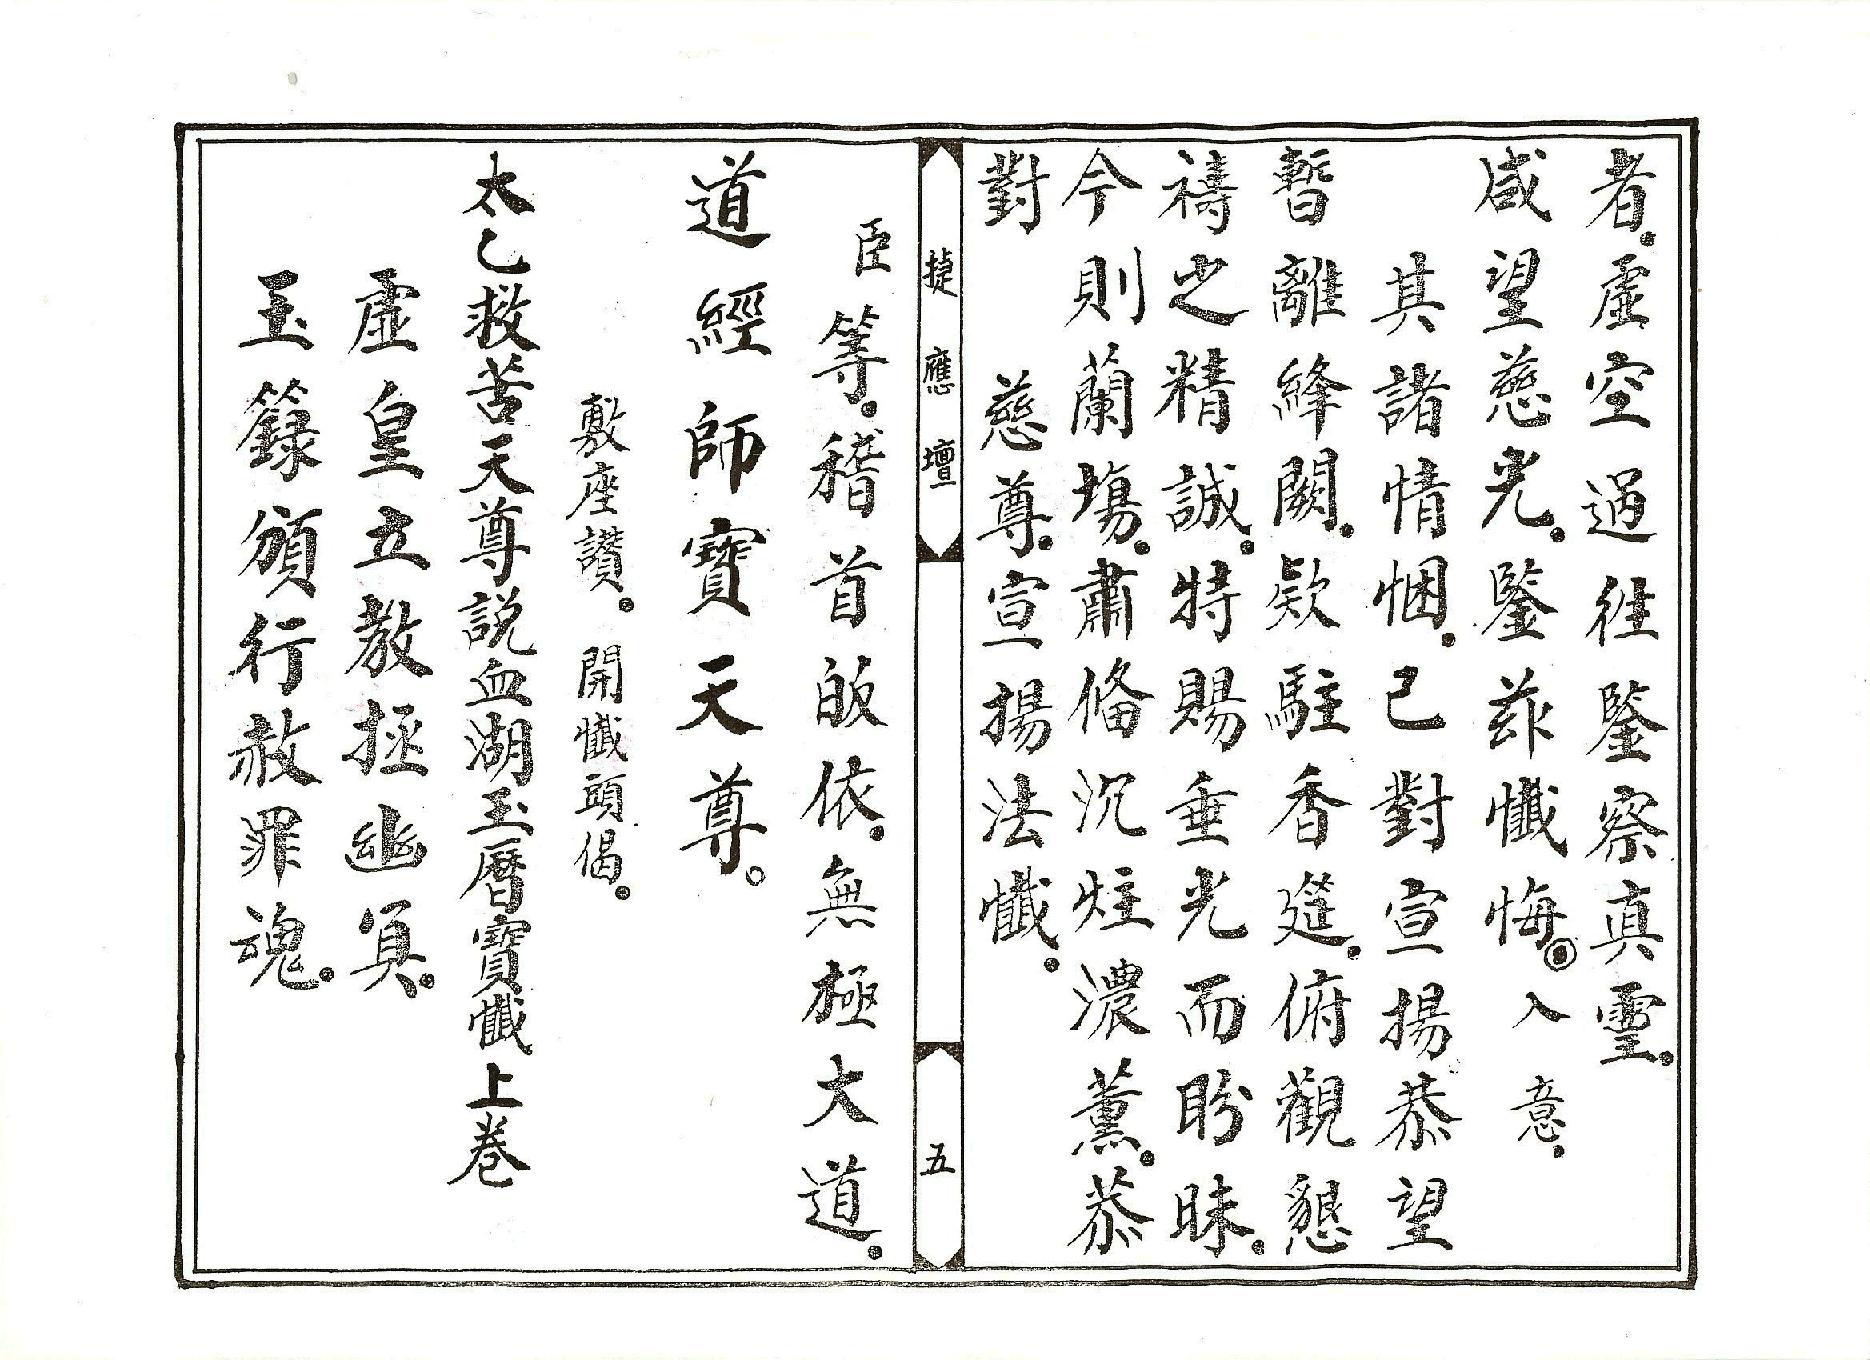 者。虛空過往鑒察真靈。
咸望慈光。鑒茲懺悔。◎入意。
其諸情悃。已對宣揚恭望
暫離絳闕。欻駐香筵。俯觀懇
禱之精誠。特賜垂光而盼昧。
今則蘭塲。肅俻沉炷濃薰。恭
對　慈尊。宣揚法懺。
捷應壇
五
臣等。稽首皈依。無極大道。
道經師寶天尊。
敷座讚。開懺頭偈。
太乙救苦天尊說血湖玉曆寶懺上卷
虛皇立教拯幽冥。
玉籙頒行赦罪魂。